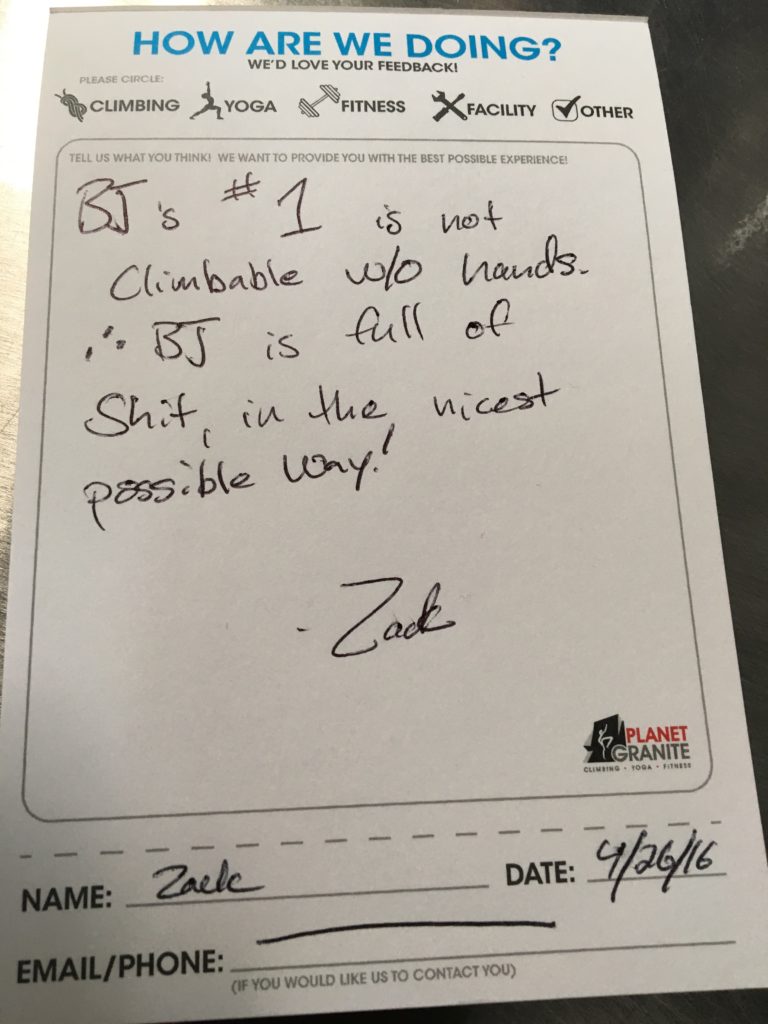 HOW ARE WE DOING?
WE'D LOVE YOUR FEEDBACK!
PLEASE CIRCLE:
CLIMBING YOGA FITNESS FACILITY OTHER
TELL US WHAT YOU THINK! WE WANT TO PROVIDE YOU WITH THE BEST POSSIBLE EXPERIENCE!
BJ's #1 is not
Climbable w/o hands.
∴ BJ is full of
Shit, in the nicest
possible way!
- Zack
PLANET
GRANITE
CLIMBING • YOGA • FITNESS
NAME: Zack DATE: 4/26/16
EMAIL/PHONE:
(IF YOU WOULD LIKE US TO CONTACT YOU)